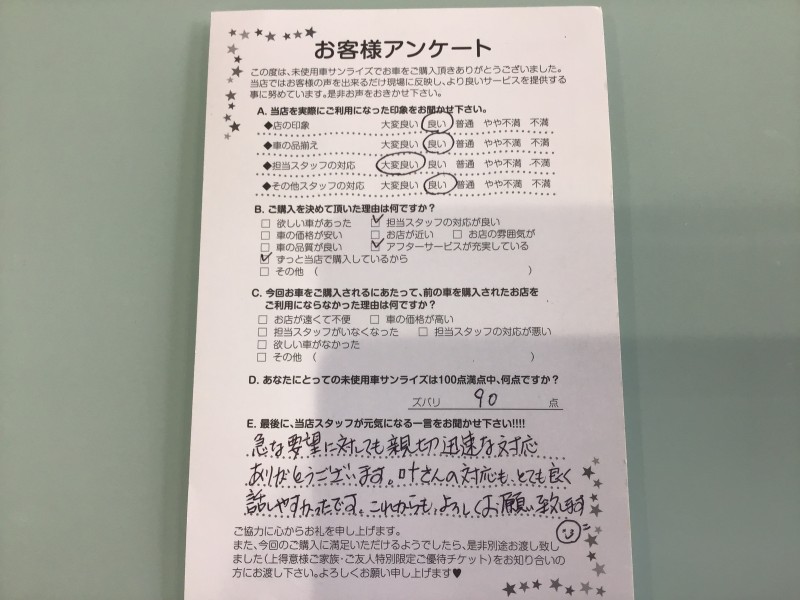 お客様アンケート
この度は、未使用車サンライズでお車をご購入頂きありがとうございました。
当店ではお客様の声を出来るだけ現場に反映し、より良いサービスを提供する
事に努めています。是非お声をおきかせ下さい。
A. 当店を実際にご利用になった印象をお聞かせ下さい。
◆店の印象 大変良い 良い 普通 やや不満 不満
◆車の品揃え 大変良い 良い 普通 やや不満 不満
◆担当スタッフの対応 大変良い 良い 普通 やや不満 不満
◆その他スタッフの対応 大変良い 良い 普通 やや不満 不満
B. ご購入を決めて頂いた理由は何ですか？
□ 欲しい車があった ☑ 担当スタッフの対応が良い
□ 車の価格が安い □ お店が近い □ お店の雰囲気が
□ 車の品質が良い ☑ アフターサービスが充実している
☑ ずっと当店で購入しているから
□ その他 （ ）
C. 今回お車をご購入されるにあたって、前の車を購入されたお店を
ご利用にならなかった理由は何ですか？
□ お店が遠くて不便 □ 車の価格が高い
□ 担当スタッフがいなくなった □ 担当スタッフの対応が悪い
□ 欲しい車がなかった
□ その他 （ ）
D. あなたにとっての未使用車サンライズは100点満点中、何点ですか？
ズバリ 90 点
E. 最後に、当店スタッフが元気になる一言をお聞かせ下さい!!!!
急な要望に対しても親切迅速な対応
ありがとうございます。叶さんの対応も、とても良く
話しやすかったです。これからも、よろしくお願い致します
ご協力に心からお礼を申し上げます。
また、今回のご購入に満足いただけるようでしたら、是非別途お渡し致し
ました（上得意様ご家族・ご友人特別限定ご優待チケット）をお知り合いの
方にお渡し下さい。よろしくお願い申し上げます♥